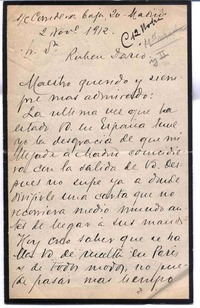 s/c Corredera baja 20. Madrid
2 Novbre 1912.
Sr. Dn
Ruben Dario
Maestro querido y siem-
pre mas admirado:
La última vez que ha
estado Vd. en España tuve
yo la desgracia de que mi
llegada á Madrid coincidie-
ra con la salida de Vd. Des-
pues no supe ya a donde
dirigirle una carta que no
recorriera medio mundo an-
tes de llegar á sus manos.
Hoy creo saber que se ha-
lla Vd. de vuelta en Paris
y de todos modos, no pue-
do pasar mas tiempo